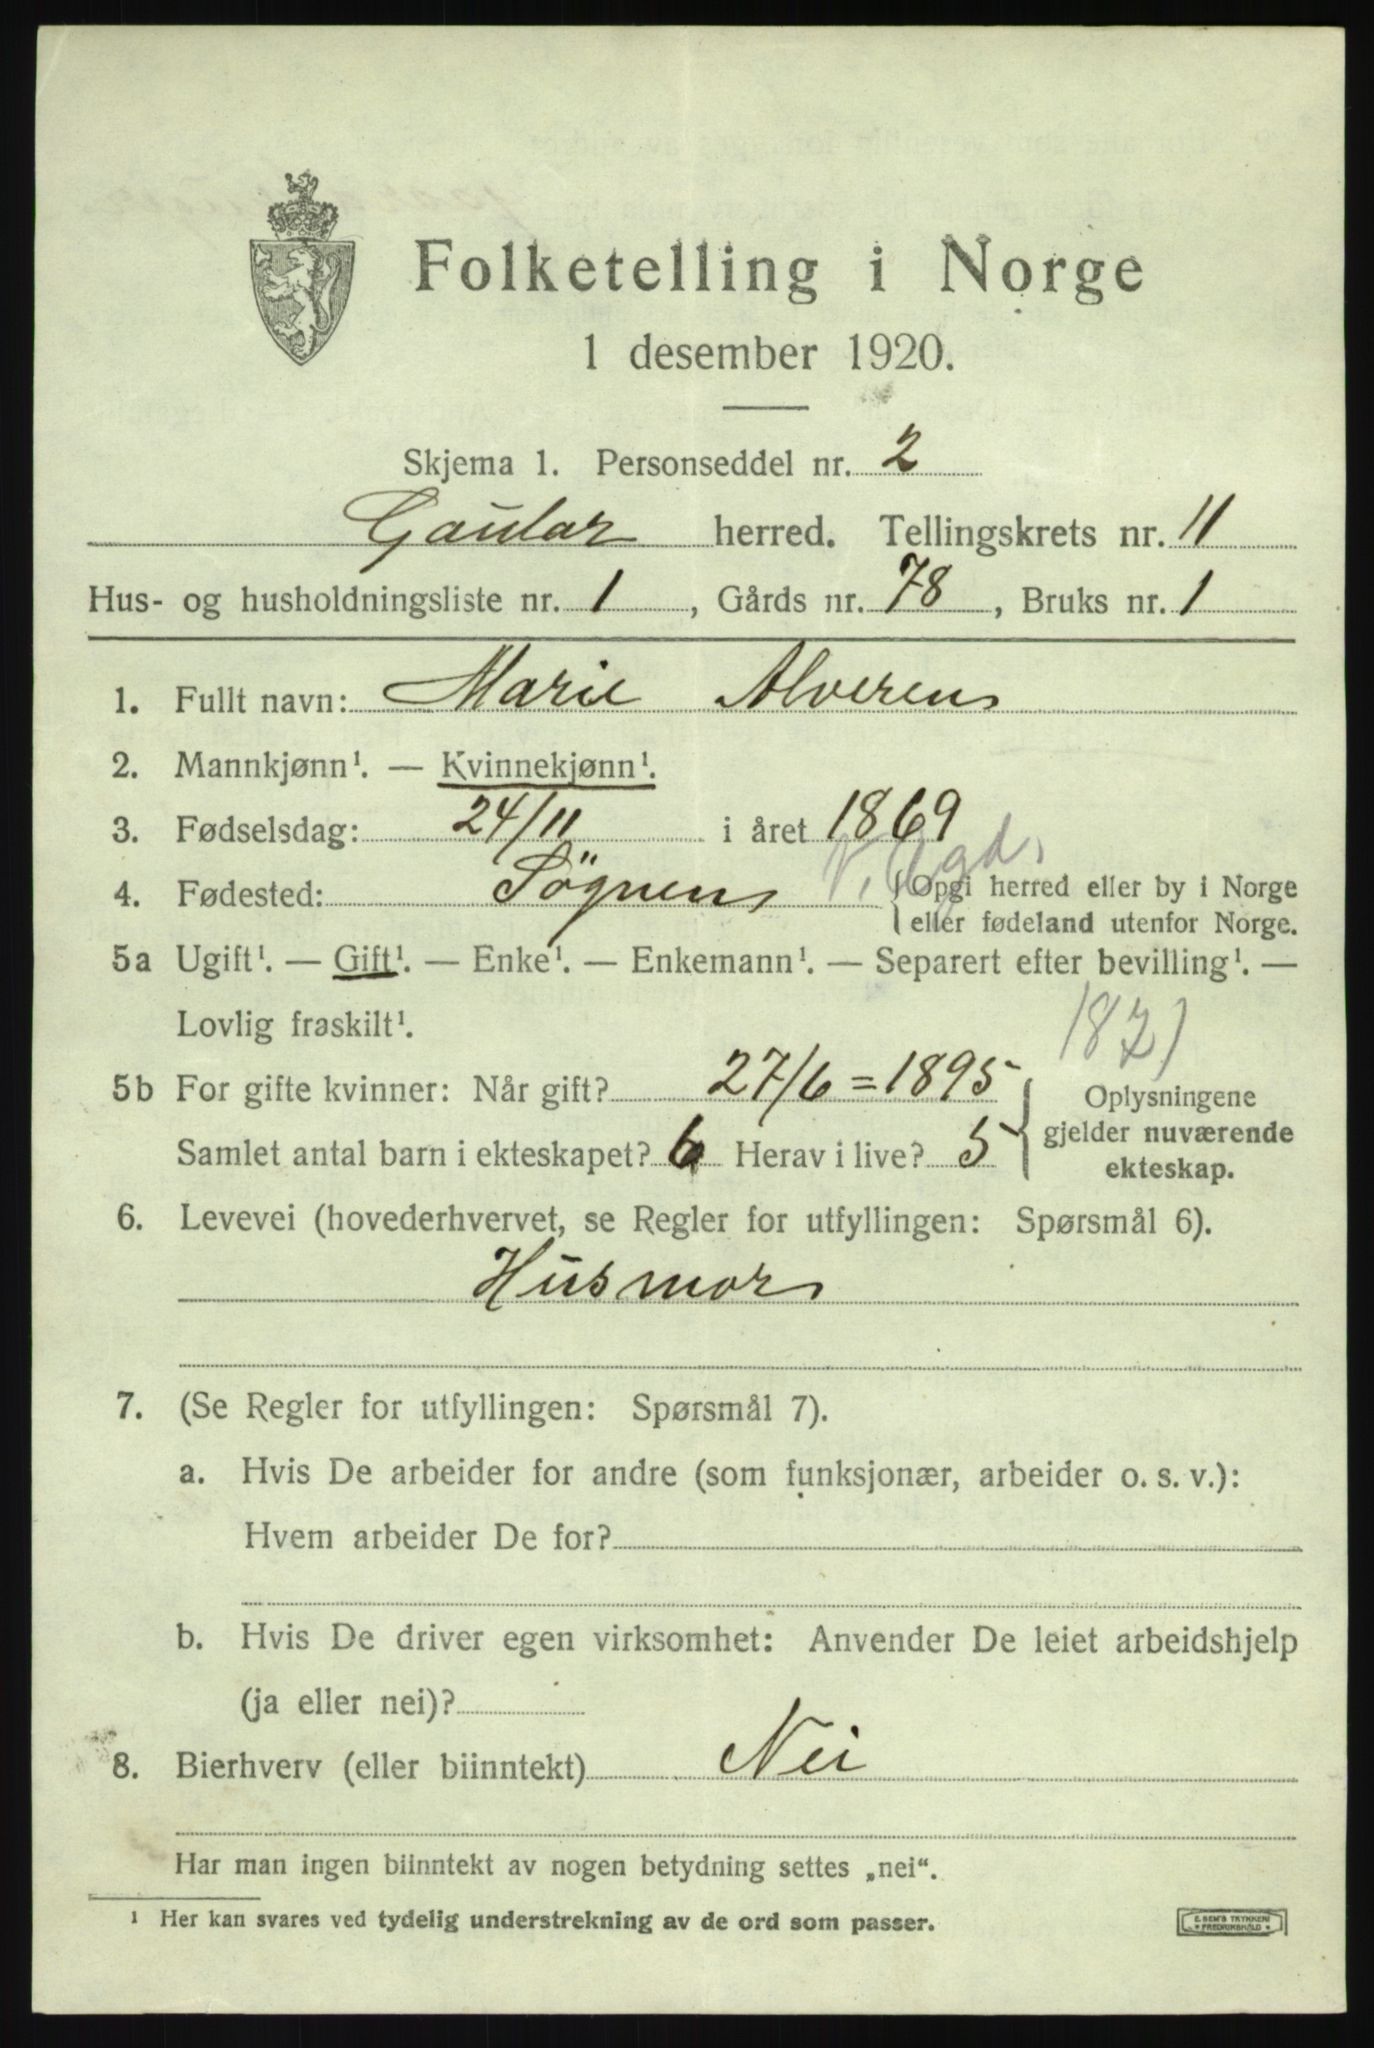 Folketelling i Norge
1 desember 1920.
Skjema 1. Personseddel nr. 2
Gaular herred. Tellingskrets nr. 11
Hus- og husholdningsliste nr. 1, Gårds nr. 78, Bruks nr. 1
1. Fullt navn: Marie Alveren
2. Mannkjønn¹. — Kvinnekjønn¹.
3. Fødselsdag: 24/11 i året 1869
4. Fødested: Sögnen V. Agd. { Opgi herred eller by i Norge
eller fødeland utenfor Norge.
5a Ugift¹. — Gift¹. — Enke¹. — Enkemann¹. — Separert efter bevilling¹. —
Lovlig fraskilt¹.
1821
5b For gifte kvinner: Når gift? 27/6 = 1895
Samlet antal barn i ekteskapet? 6 Herav i live? 5
Oplysningene
gjelder nuværende
ekteskap.
6. Levevei (hovederhvervet, se Regler for utfyllingen: Spørsmål 6).
Husmor
7. (Se Regler for utfyllingen: Spørsmål 7).
a. Hvis De arbeider for andre (som funksjonær, arbeider o. s. v.):
Hvem arbeider De for?
b. Hvis De driver egen virksomhet: Anvender De leiet arbeidshjelp
(ja eller nei)?
8. Bierhverv (eller biinntekt) Nei
Har man ingen biinntekt av nogen betydning settes „nei“.
¹ Her kan svares ved tydelig understrekning av de ord som passer.
E. SEM'S TRYKKERI
FREDRIKSHALD